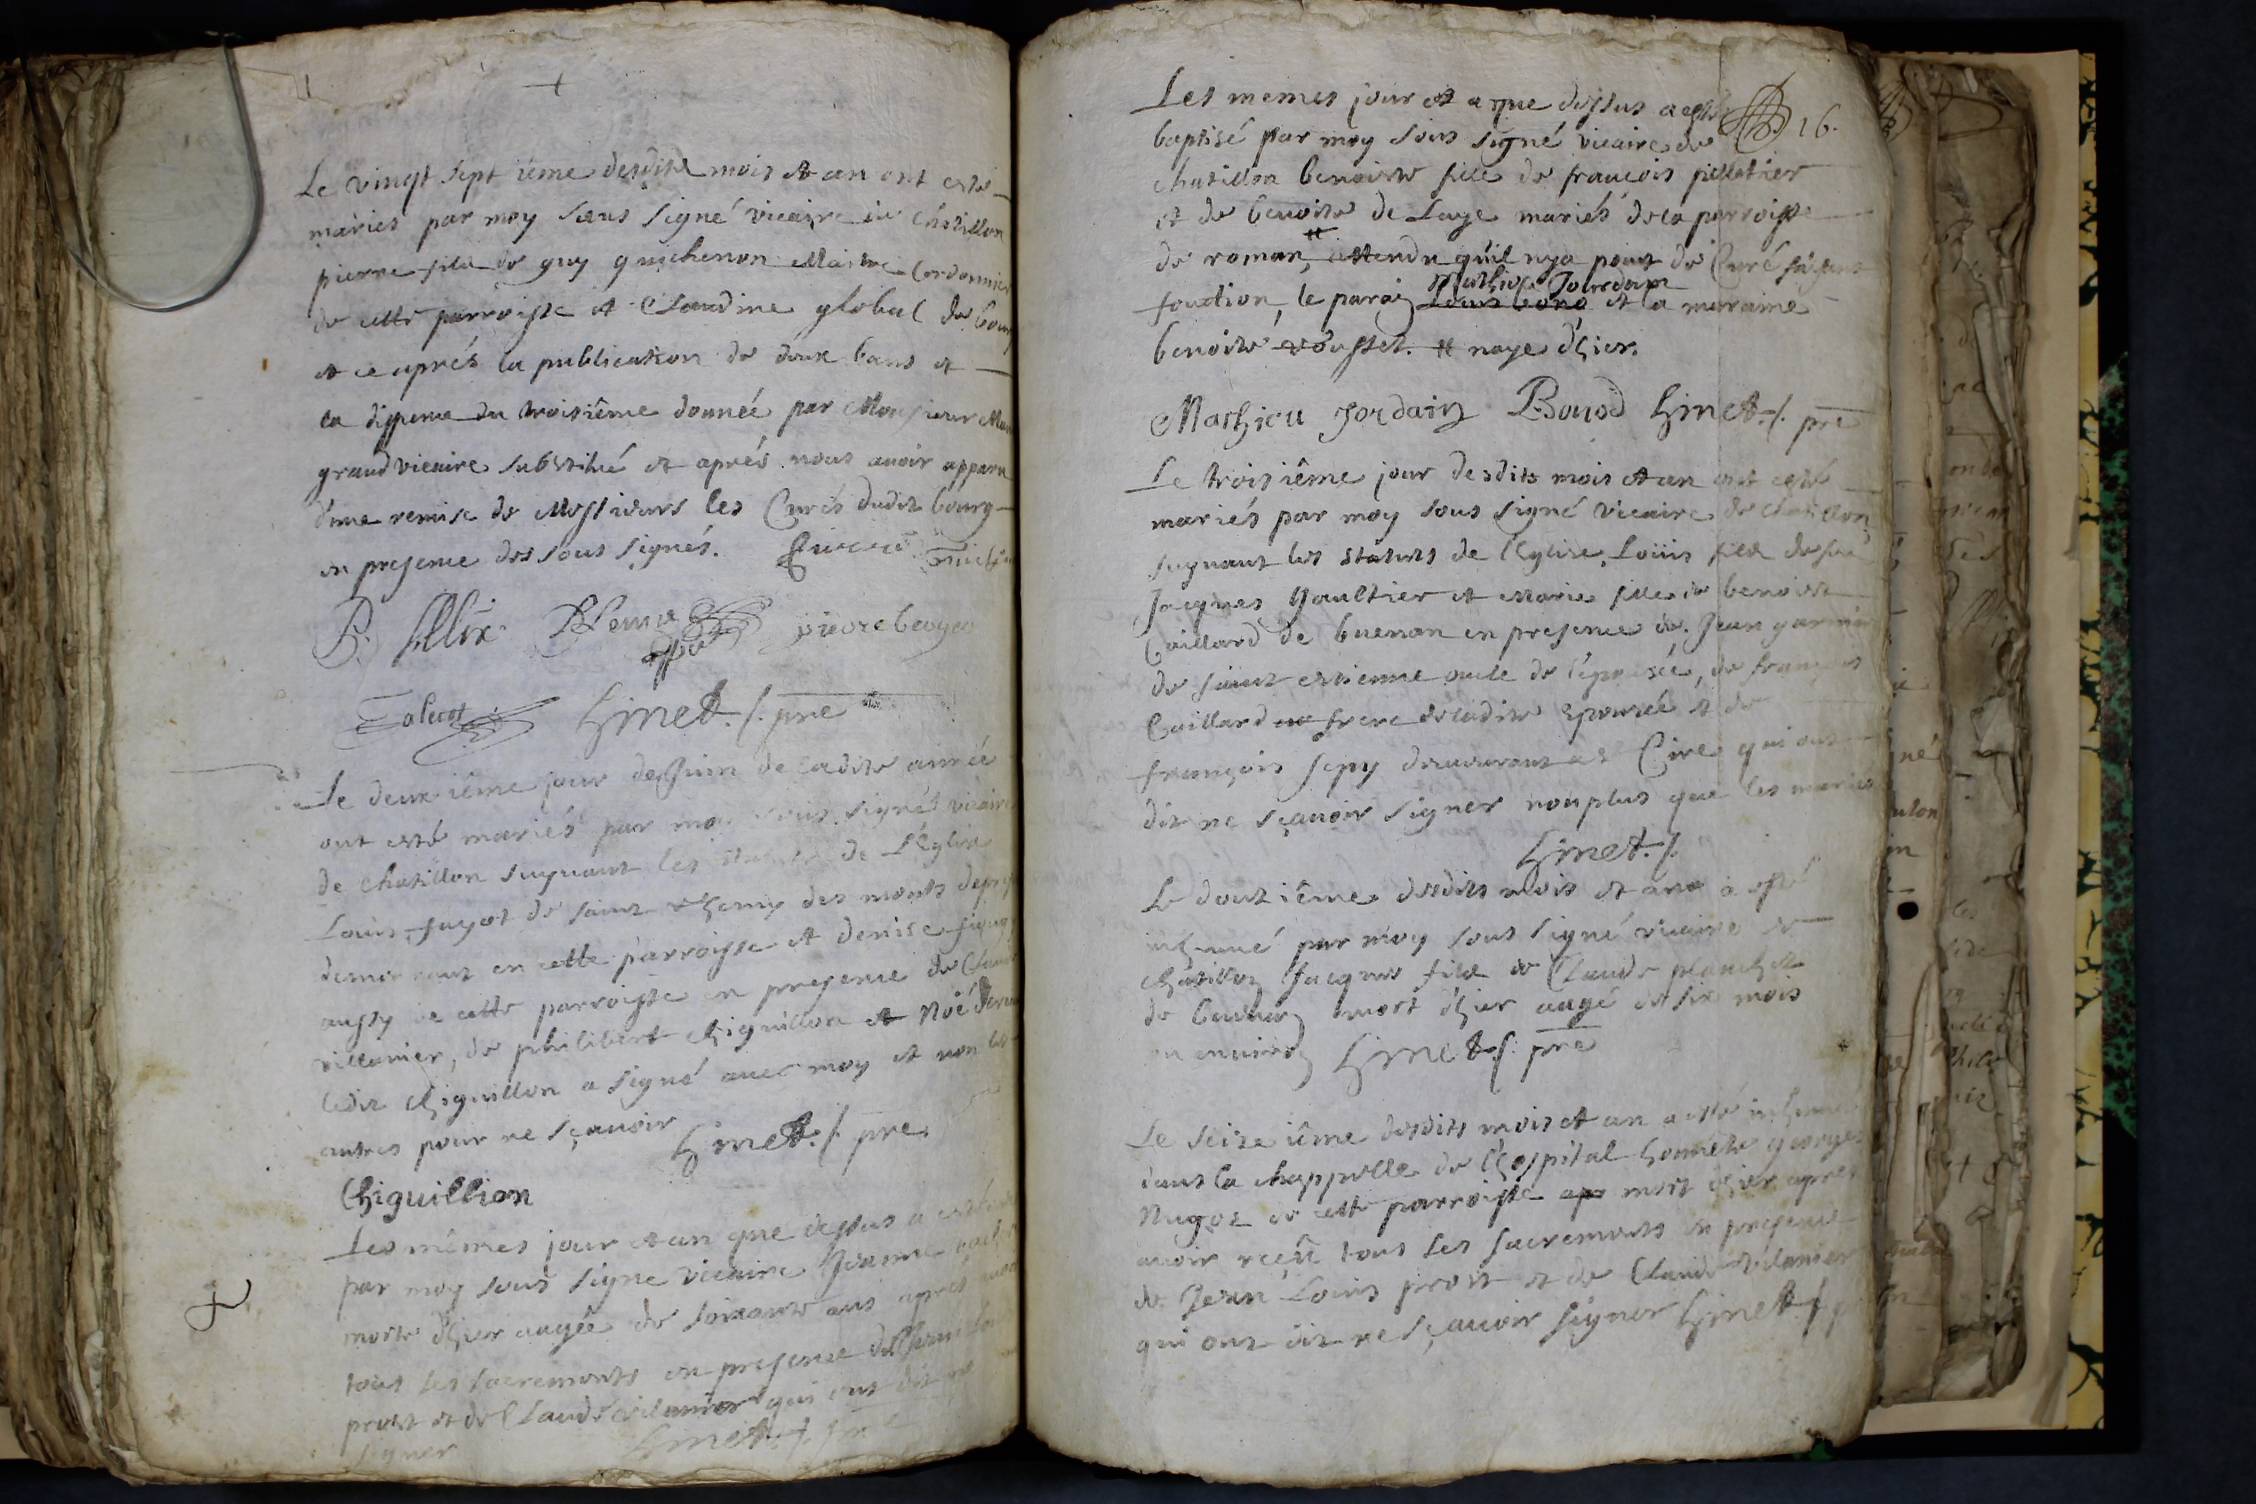 Le vingt sept iéme desdits mois et an ont esté
mariés par moy sous signé vicaire de Châtillon
pierre fils de guy guichenon Maitre Cordonnier
de cette parroisse et Claudine global de bourg
et ce aprés la publication de deux bans et
la dispense du troisiême donnée par Monsieur
grand vicaire substitué et aprés nous avoir apparu
d'une remise de Messieurs les Curés dudit bourg
en presence des sous signés.
pierre
hinet pre
Le deux iême jour de Juin de ladite année
ont esté mariés par moy sous signé vicaire
de chatillon suyvant les statuts de L'Eglise
Louis fayot de saint des monts
demeurant en cette parroisse et denise
aussy de cette parroisse en presence de Claude
villanier, de philibert chiguillon et Noé
ledit chiguillon a signé avec moy et non les
autres pour ne sçavoir hinet pre
Chiguillion
Les mêmes jour et an que dessus a esté
par moy sous signé vicaire Jeanne
morte d'hier aagée de soixante ans aprés
tous les sacrements en presence de Jean Louis
prost et de Claude vilanier qui ont dit ne
signer hinet pre
16.
Les memes jour et a que dessus a esté
baptisé par moy sous signé vicaire de
chatillon benoiste fille de francois pelletier
et de benoite de Laye mariés de la parroisse
de roman, attendu qu'il n'ya point de Curé faisant
Mathieu Jourdain
fonction, le parain et la maraine
benoite rousset. naye d'hier.
Mathieu Jordain Bonod hinet pre
Le troisiême jour desdits mois et an ont esté
mariés par moy sous signé vicaire de chatillon
suyvant les statuts de l'Eglise, Loüis fils de feu
Jacques Gaultier et Marie fille de benoist
Caillard de buenan en presence de Jean garnier
de saint estienne oncle de l'epousée, de françois
Caillard frere de ladite epousée et de
françois sepy demeurant a Cire qui ont
dit ne sçavoir signer non plus que les mariés
hinet
Le douziême desdits mois et an a esté
inhumé par moy sous signé vicaire de
châtillon Jacques fils de Claude planchet
de mort d'hier aagé de six mois
ou environ hinet pre
Le seize iême desdits mois et an a esté inhumé
dans la chappelle de l'hospital honnête george
Nugoz de cette parroisse mort d'hier aprés
avoir reçeü tous les sacrements en presence
de Jean Louis prost et de Claude vilanier
qui ont dit ne sçavoir signer hinet